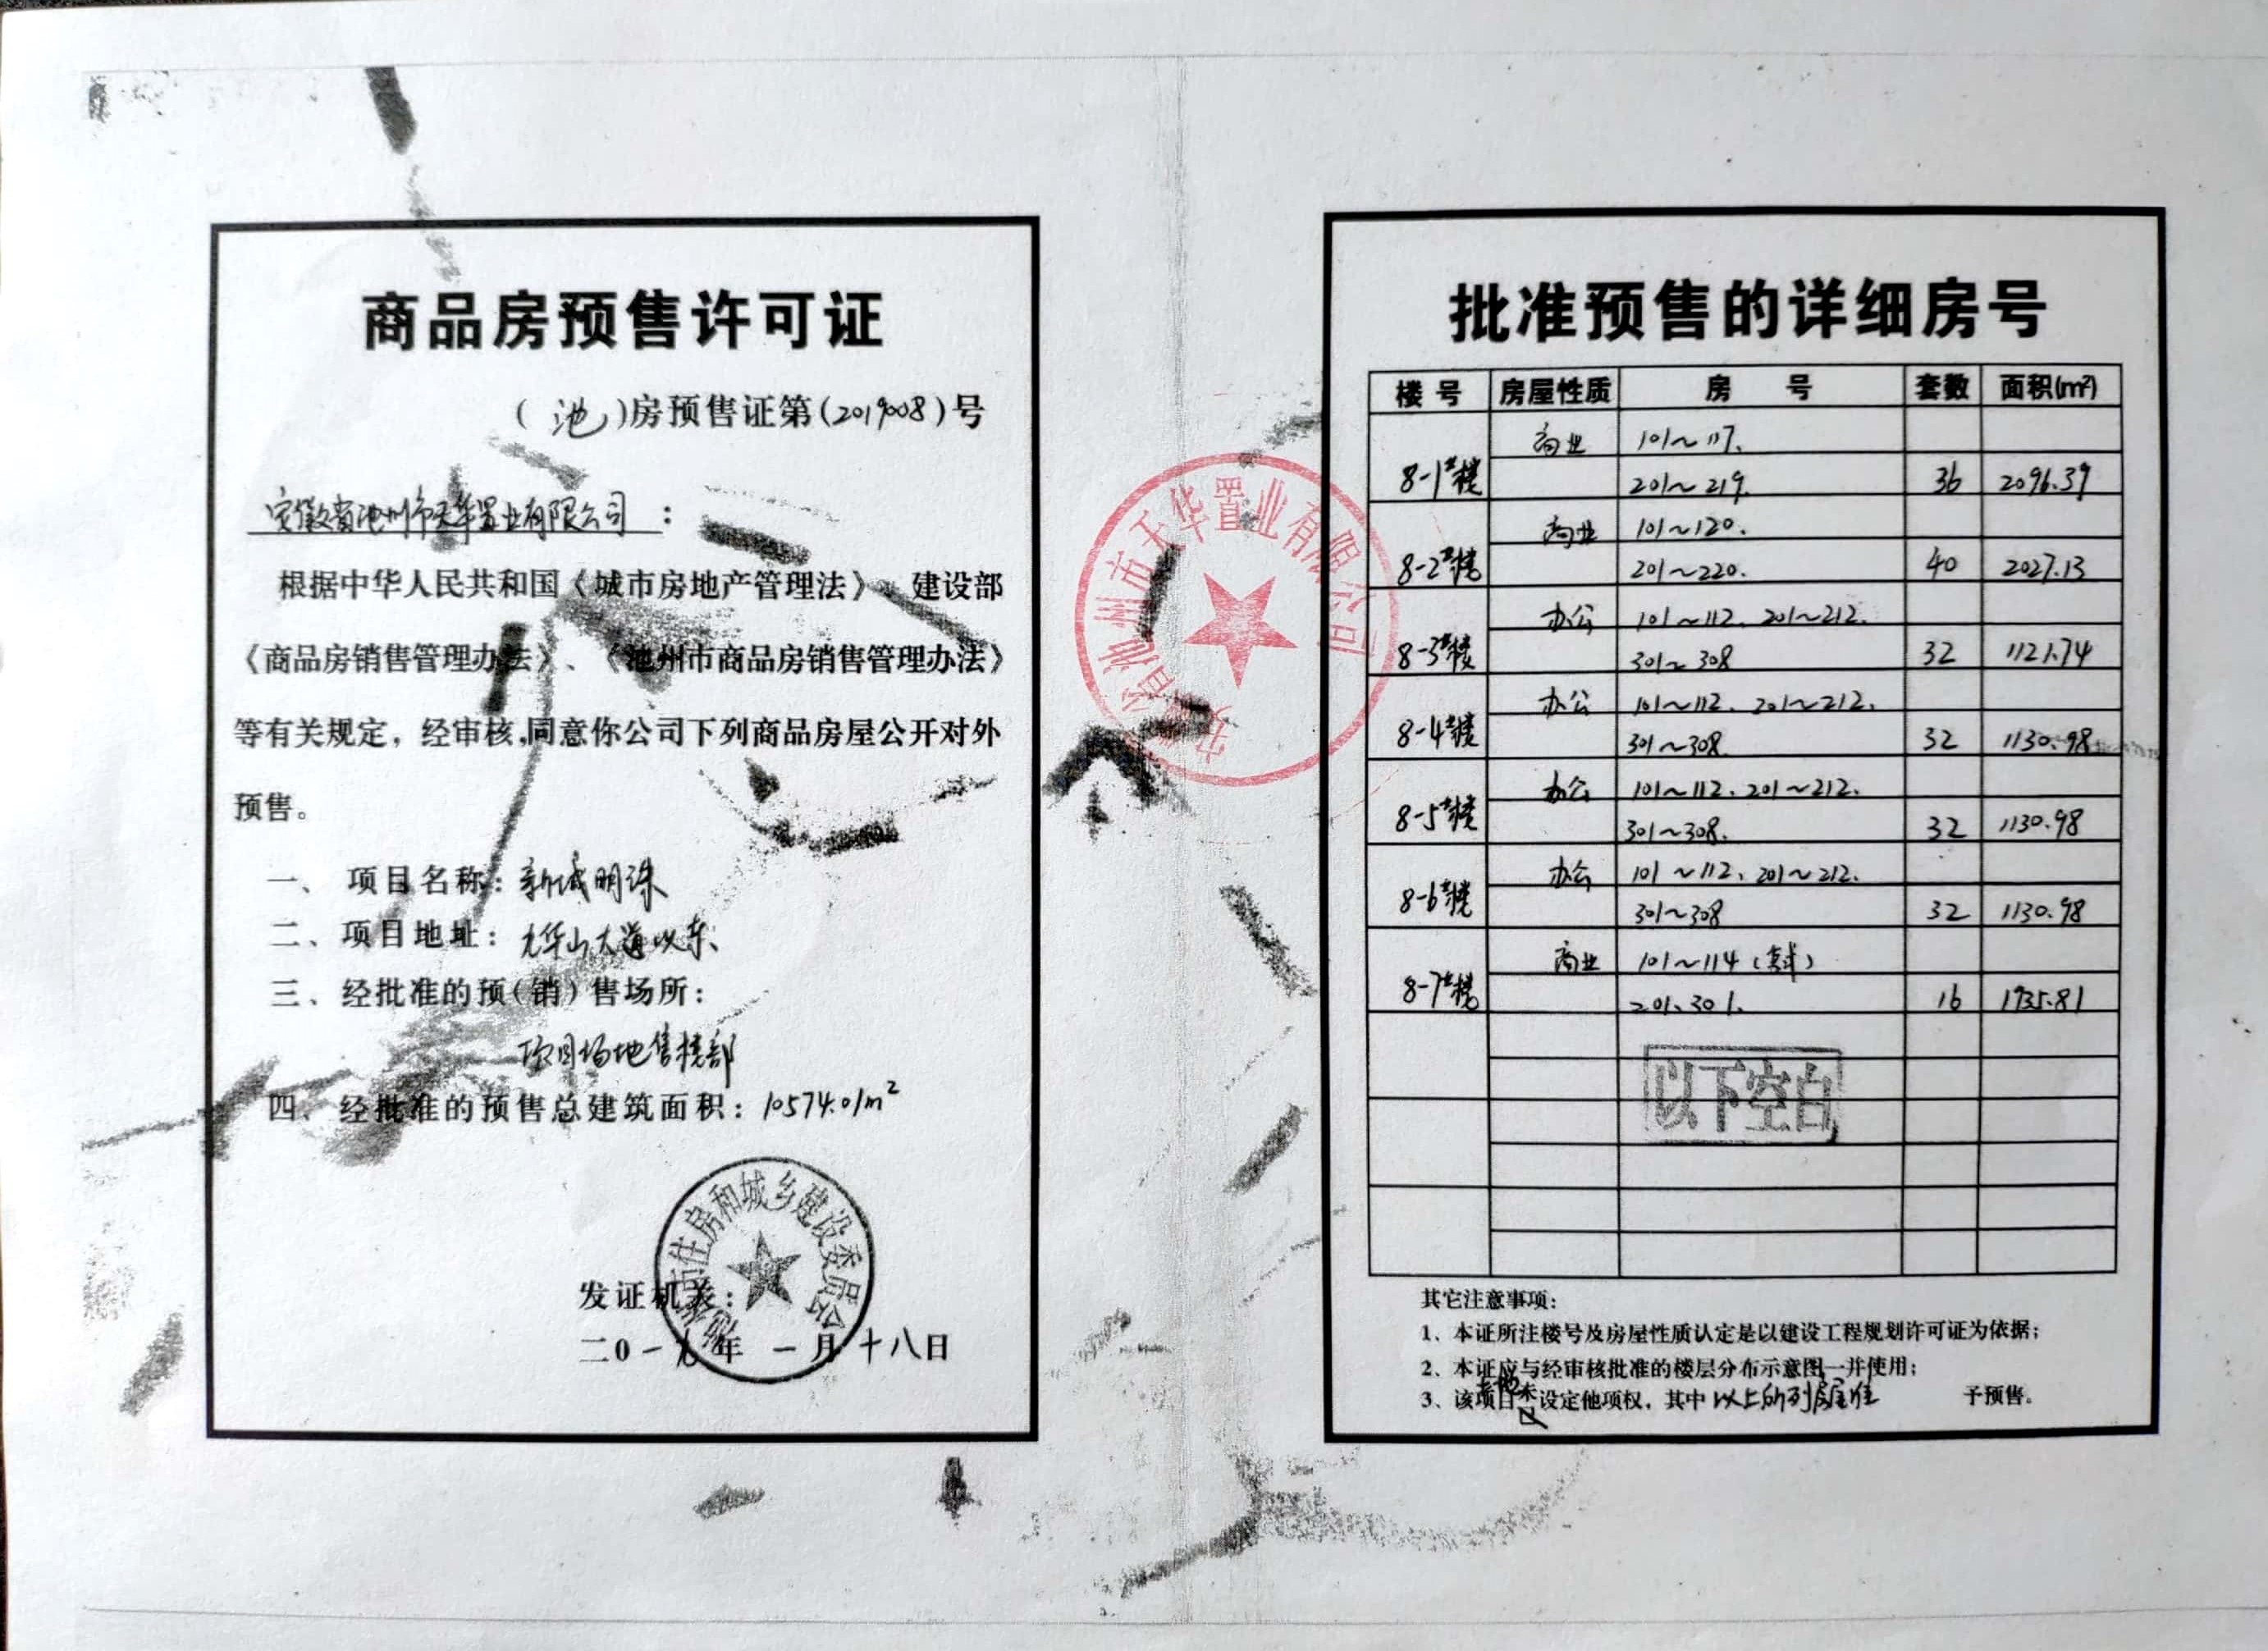 商品房预售许可证
(池)房预售证第(2019008)号
安徽省池州市天华置业有限公司：
根据中华人民共和国《城市房地产管理法》、建设部
《商品房销售管理办法》、《池州市商品房销售管理办法》
等有关规定，经审核,同意你公司下列商品房屋公开对外
预售。
一、项目名称：新城明珠
二、项目地址：九华山大道以东、
三、经批准的预(销)售场所：
项目场地售楼部
四、经批准的预售总建筑面积：10574.01m²
池州市住房和城乡建设委员会
发证机关：
二0一九年一月十八日
安徽省池州市天华置业有限公司
批准预售的详细房号
楼号 房屋性质 房号 套数 面积(m²)
商业 101～117、
8-1#楼 201～219. 36 2096.39
商业 101～120.
8-2#楼 201～220. 40 2027.13
办公 101～112、201～212.
8-3#楼 301～308 32 1121.74
办公 101～112、201～212.
8-4#楼 301～308. 32 1130.98
办公 101～112、201～212.
8-5#楼 301～308. 32 1130.98
办公 101～112、201～212.
8-6#楼 301～308 32 1130.98
商业 101～114
8-7#楼 201、301. 16 1935.81
以下空白
其它注意事项：
1、本证所注楼号及房屋性质认定是以建设工程规划许可证为依据；
2、本证应与经审核批准的楼层分布示意图一并使用；
3、该项目土地未设定他项权，其中以上所列房屋准予预售。